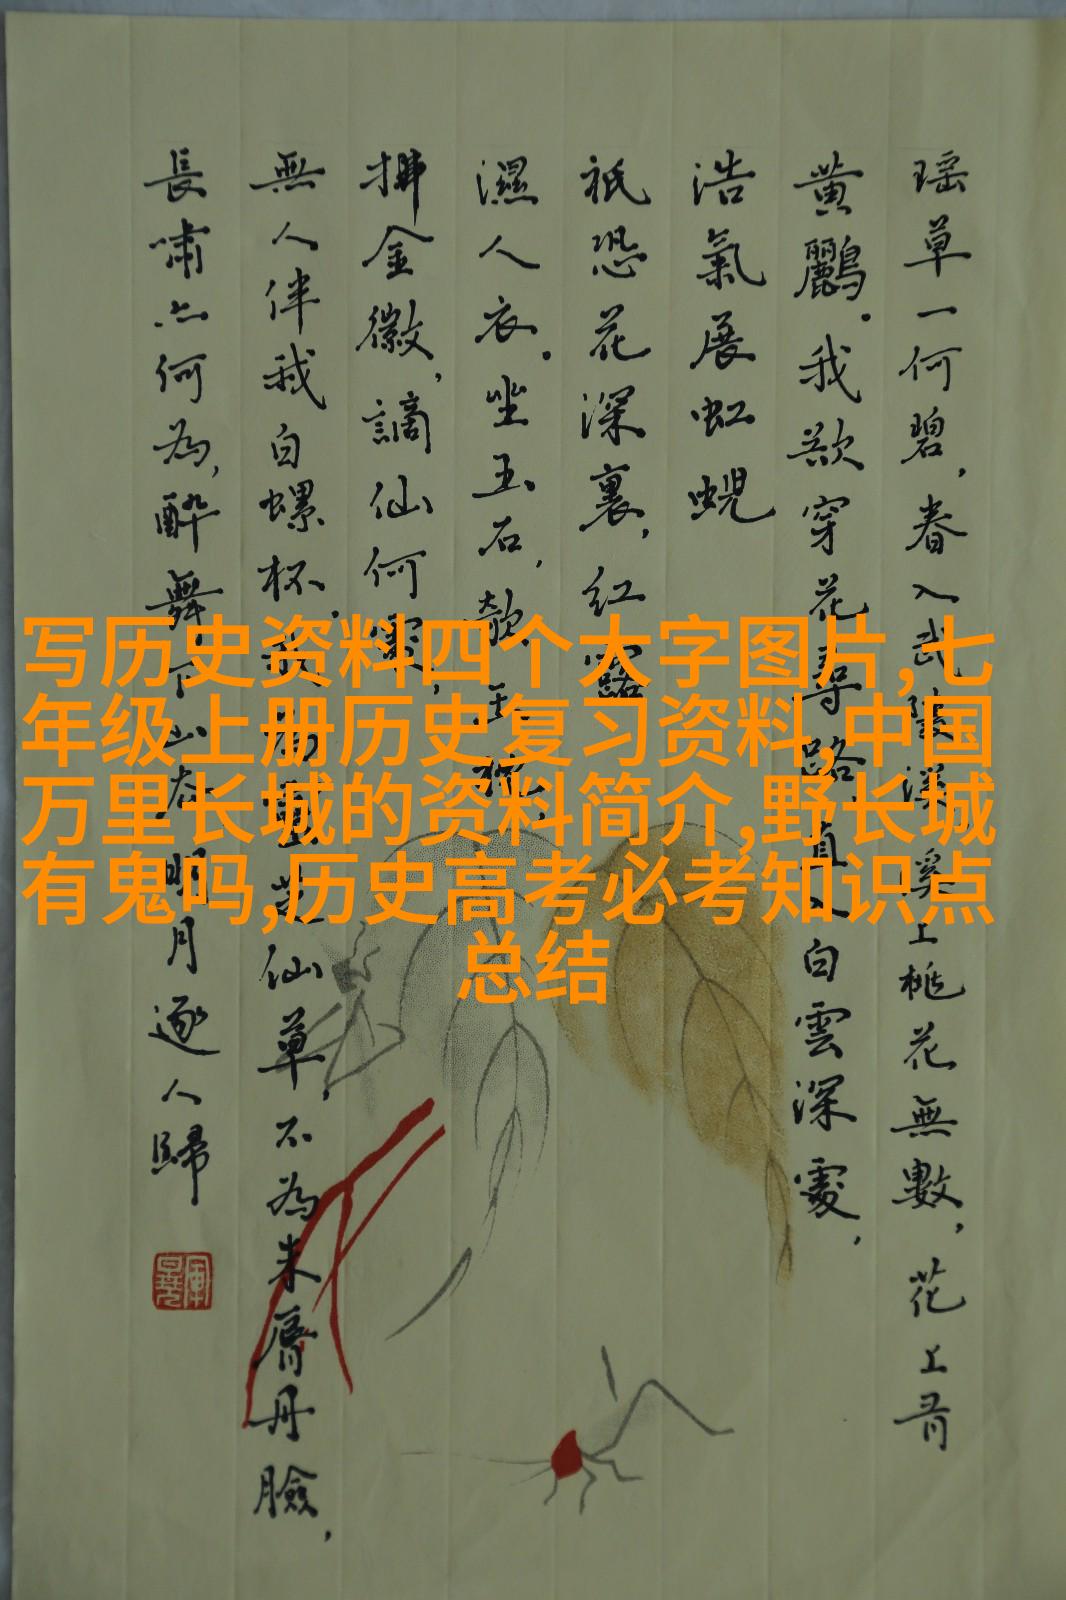 瑶草一何碧,春入武陵溪溪上桃花無數,花上有
黄鸝。我欲穿花尋路,直入白雲深處,
浩氣展虹蜺
祇恐花深裏,紅露
濕人衣。坐玉石,欹玉枕,
拂金徽,謫仙何處,
無人伴我白螺杯。我為靈芝仙草,不為朱脣丹臉,
長嘯亦何為,醉舞下山去明月逐人歸
写历史资料四个大字图片,七
年级上册历史复习资料,中国
万里长城的资料简介,野长城
有鬼吗,历史高考必考知识点
总结